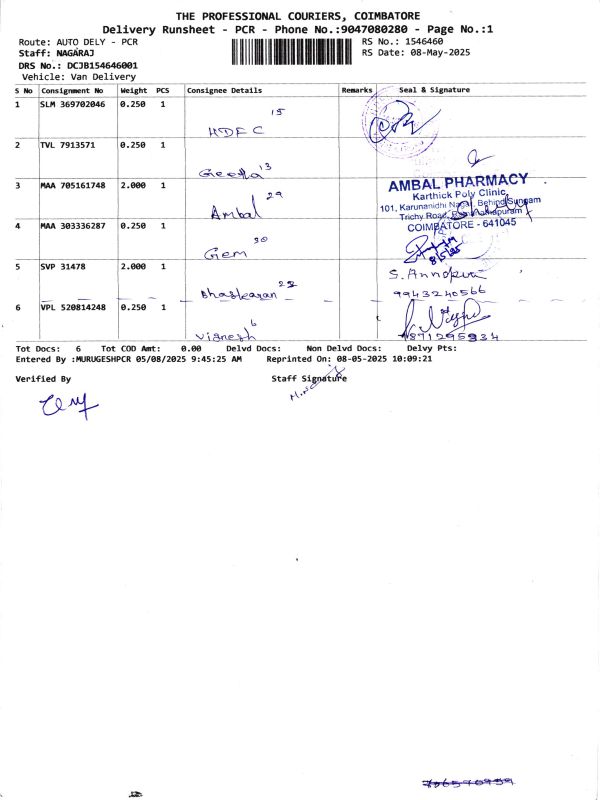 THE PROFESSIONAL COURIERS, COIMBATORE
Delivery Runsheet - PCR - Phone No.:9047080280 - Page No.:1
Route: AUTO DELY - PCR RS No.: 1546460
Staff: NAGARAJ RS Date: 08-May-2025
DRS No.: DCJB154646001
Vehicle: Van Delivery
S No Consignment No Weight PCS Consignee Details Remarks Seal & Signature
1 SLM 369702046 0.250 1
15
HDFC
2 TVL 7913571 0.250 1
Geetha 13
3 MAA 705161748 2.000 1
29
Ambal
AMBAL PHARMACY
Karthick Poly Clinic,
101, Karunanidhi Nagar, Behind Sungam
Trichy Road, Ramanathapuram
COIMBATORE - 641045
4 MAA 303336287 0.250 1
30
Gem
8/5/25
5 SVP 31478 2.000 1
S. Annopu
Bhaskaran 22
9943240566
6 VPL 520814248 0.250 1
6
Vignesh
9871295834
Tot Docs: 6 Tot COD Amt: 0.00 Delvd Docs: Non Delvd Docs: Delvy Pts:
Entered By :MURUGESHPCR 05/08/2025 9:45:25 AM Reprinted On: 08-05-2025 10:09:21
Verified By Staff Signature